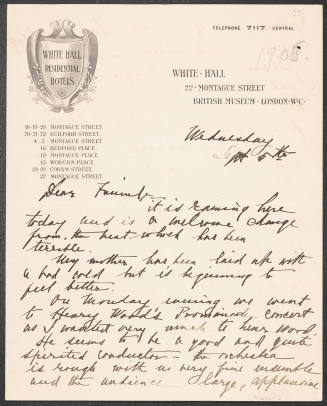 TELEPHONE 7117 CENTRAL
1905
WHITE HALL
RESIDENTIAL
HOTELS.
WHITE-HALL
22 · MONTAGUE STREET
BRITISH MUSEUM · LONDON · W·C·
18-19-20 MONTAGUE STREET
70-71-72 GUILFORD STREET
4-5 MONTAGUE STREET
16 BEDFORD PLACE.
19 MONTAGUE PLACE.
15 WOBURN PLACE.
22-22 CORAM STREET.
22 MONTAGUE STREET
Wednesday
Sept 6th
Dear
it is raining here
today and is a welcome change
from the heat which has been
terrible.
My mother has been laid up with
a bad cold but is beginning to
feel better.
On Monday evening we went
to Henry Wood's Promenade concert
as I wanted very much to hear Wood.
He seems to be a good and quite
spirited conductor - the orchestra
is rough with no very fine ensemble
and the audience large, applausive